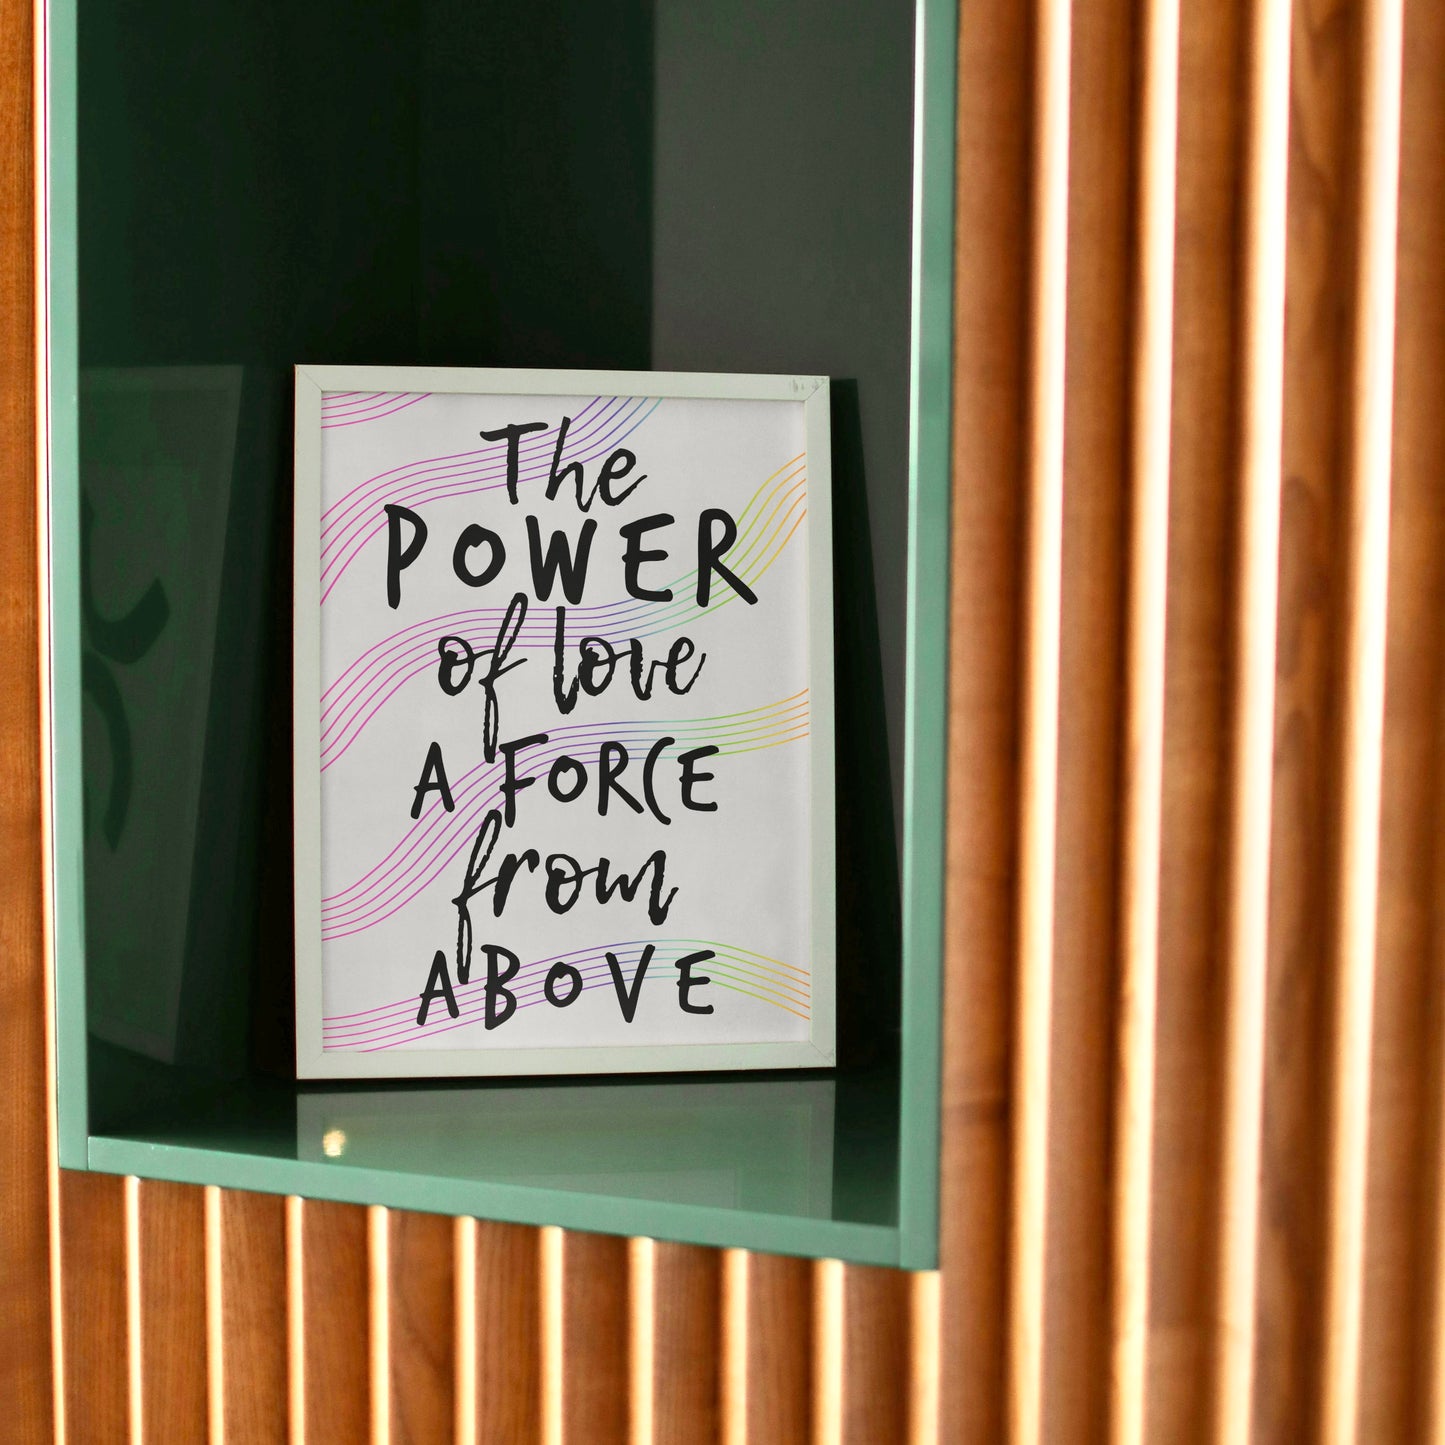 The
POWER
of love
A FORCE
from
ABOVE